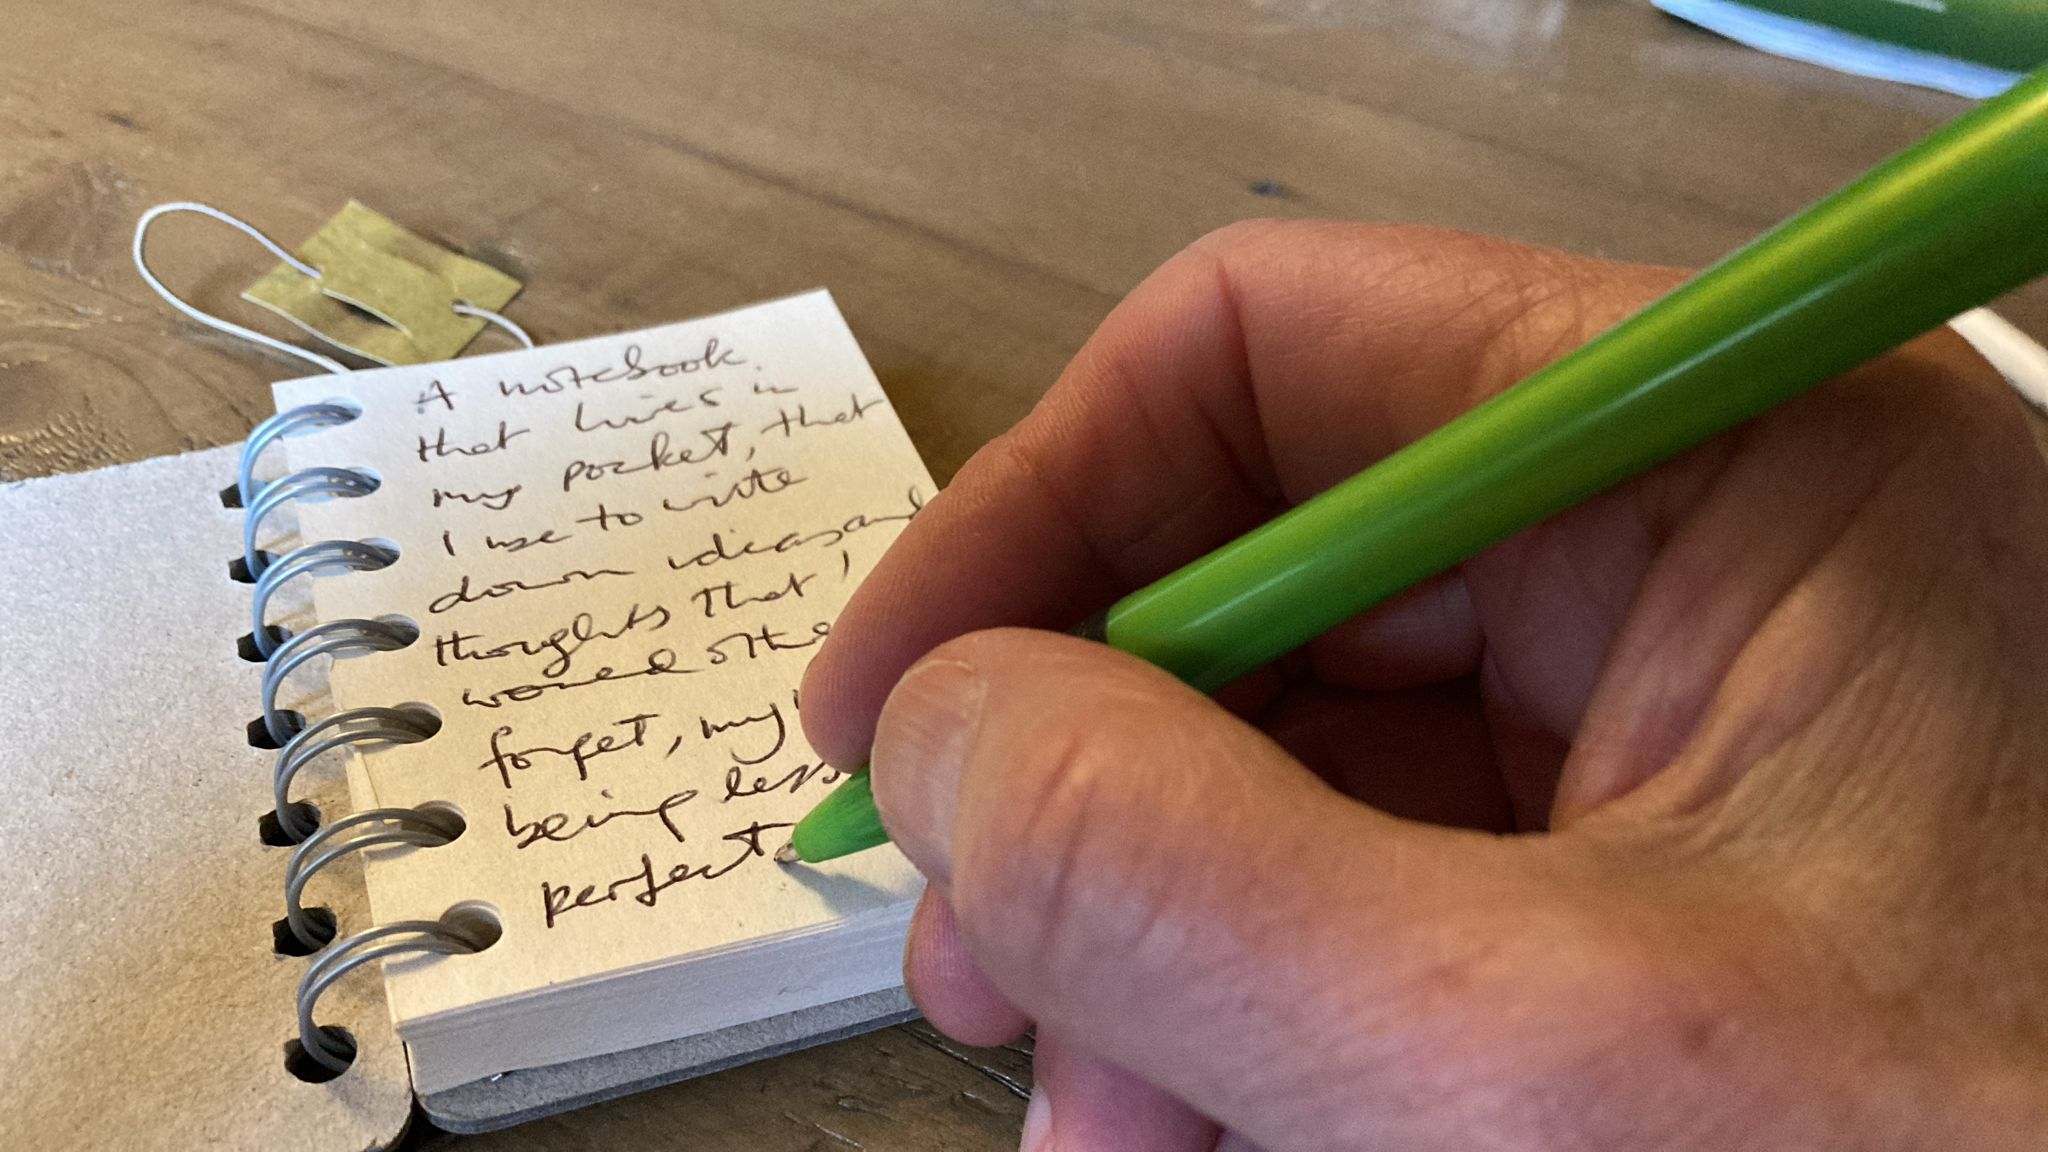 A notebook
that lives in
my pocket, that
I use to write
down ideas and
thoughts that I
would othe
forget, my
being less
perfect